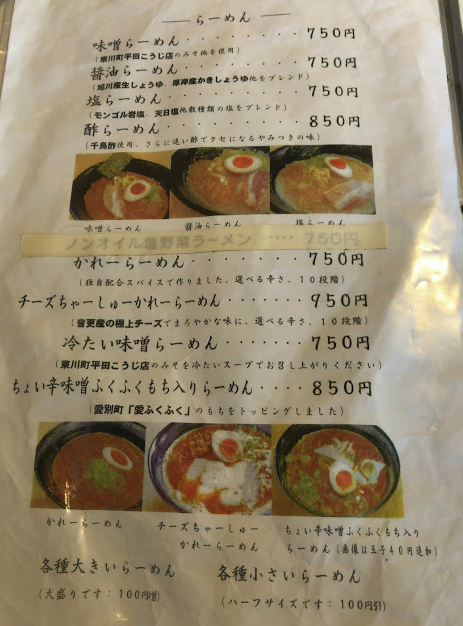 らーめん
味噌らーめん・・・・・・・・・750円
(東川町平田こうじ店のみそ他を使用)
醤油らーめん・・・・・・・・・750円
(旭川産生しょうゆ、厚岸産かきしょうゆ他をブレンド)
塩らーめん・・・・・・・・・・750円
(モンゴル岩塩、天日塩他数種類の塩をブレンド)
酢らーめん・・・・・・・・・・850円
(千鳥酢使用、さらに追い酢でクセになるやみつきの味)
味噌らーめん 醤油らーめん 塩らーめん
ノンオイル塩野菜ラーメン・・・・・750円
かれーらーめん・・・・・・・・750円
(独自配合スパイスで作りました、選べる辛さ、10段階)
チーズちゃーしゅーかれーらーめん・・・・・・・950円
(音更産の極上チーズでまろやかな味に、選べる辛さ、10段階)
冷たい味噌らーめん・・・・・・・750円
(東川町平田こうじ店のみそを冷たいスープでお召し上がりください)
ちょい辛味噌ふくふくもち入りらーめん・・・・850円
(愛別町「愛ふくふく」のもちをトッピングしました)
かれーらーめん
チーズちゃーしゅー
かれーらーめん
ちょい辛味噌ふくふくもち入り
らーめん(画像は玉子40円追加)
各種大きいらーめん
(大盛りです:100円増)
各種小さいらーめん
(ハーフサイズです:100円引)